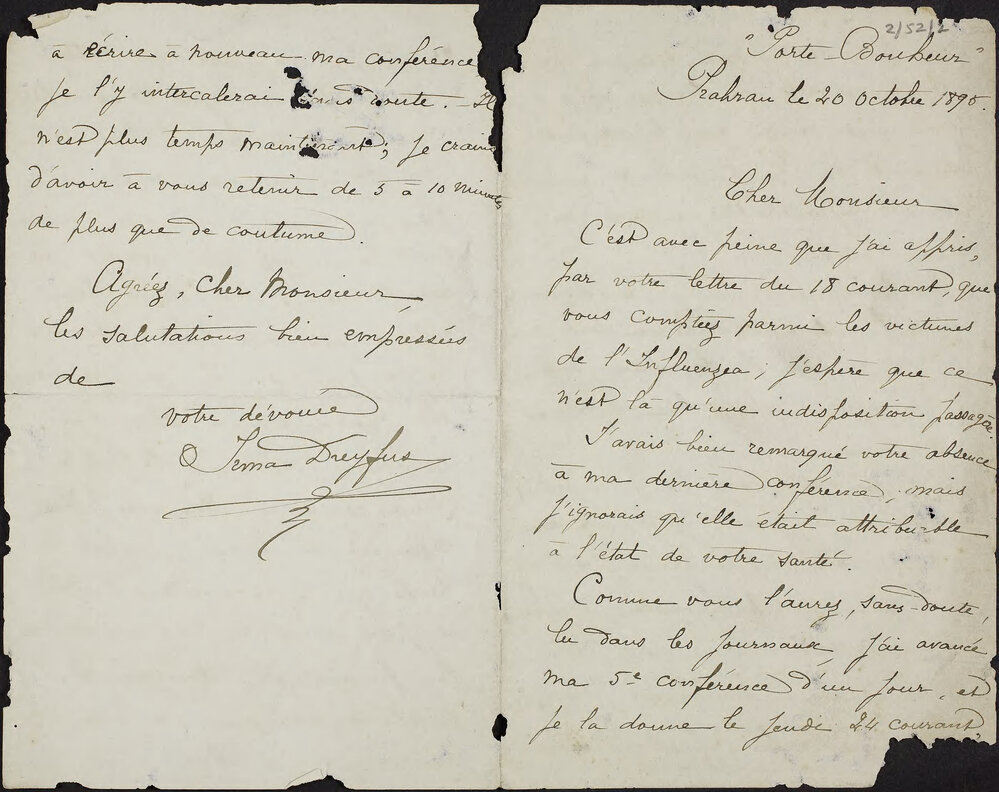 2/52/2
"Porte-Bonheur"
Prahran le 20 Octobre 1890.
Cher Monsieur
C'est avec peine que j'ai appris,
par votre lettre du 18 courant, que
vous comptiez parmi les victimes
de l'Influenzea; j'espère que ce
n'est là qu'une indisposition passagère.
J'avais bien remarqué votre absence
à ma dernière conférence, mais
j'ignorais qu'elle était attribuable
à l'état de votre santé.
Comme vous l'aurez, sans-doute,
lu dans les journaux, j'ai avancé
ma 5e conférence d'un jour, et
je la donne le jeudi 24 courant,
à écrire à nouveau ma conférence
je l'y intercalerai sans doute. - Il
n'est plus temps maintenant; je crains
d'avoir à vous retenir de 5 à 10 minutes
de plus que de coutume.
Agréez, Cher Monsieur
les salutations bien empressées
de
votre dévouée
Irma Dreyfus